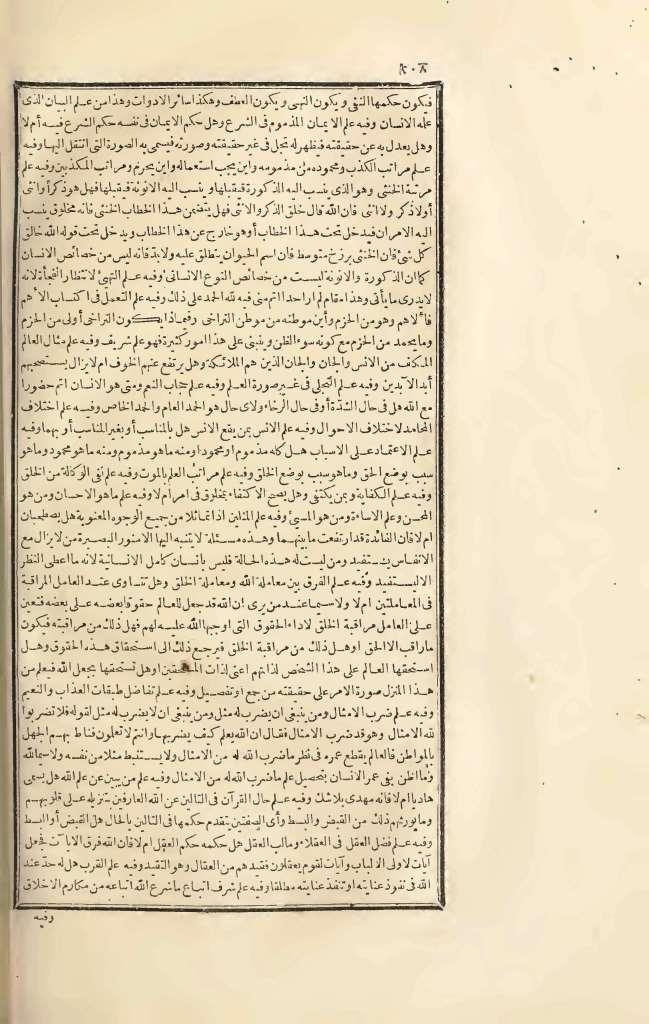 ٥٠٨
فيكون حكمها النفى ويكون النهى ويكون العطف وهكذا سائر الادوات وهذا من علم البيان الذى
علمه الانسان وفيه علم الايمان المذموم فى الشرع وهل حكم الايمان فى نفسه حكم الشرع فيه أم لا
وهل يعدل به عن حقيقته فيظهر له تجل فى غير حقيقته وصورته فيسمى به الصورة التى انتقل اليها وفيه
علم مراتب الكذب ومحموده من مذمومه وأين يجب استعماله وأين يحرم ومراتب المكذبين وفيه علم
مرتبة الخنثى وهو الذى ينسب اليه الذكورة فيقبلها وينسب اليه الانوثة فيقبلها فهل هو ذكر أو انثى
أو لا ذكر ولا انثى فان الله قال خلق الذكر والانثى فهل يتضمن هذا الخطاب الخنثى فانه مخلوق ينسب
اليه الامران فيدخل تحت هذا الخطاب أو هو خارج عن هذا الخطاب ويدخل تحت قوله الله خالق
كل شئ فان الخنثى برزخ متوسط فان اسم الحيوان ينطلق عليه ولا بد فانه ليس من خصائص الانسان
كما ان الذكورة والانوثة ليست من خصائص النوع الانسانى وفيه علم التهيئ لانتظار الفجأة لانه
لا يدرى ما يأتى وهذا مقام لم ار احدا اتم منى فيه لله الحمد على ذلك وفيه علم التعمل فى اكتساب الاهم
فالاهم وهو من الحزم وأين موطنه من موطن التراخى وفيماذا يكون التراخى أولى من الحزم
وما يحمد من الحزم مع كونه سوء الظن وينبنى على هذا امور كثيرة فهو علم شريف وفيه علم مثال العالم
المكلف من الانس والجان والجان الذين هم الملائكة وهل يرتفع عنهم الخوف ام لا يزال يستصحبهم
أبد الآبدين وفيه علم التجلى فى غير صورة العلم وفيه علم حجاب النعم ومتى هو الانسان اتم حضورا
مع الله هل فى حال الشدة أو فى حال الرخاء ولاى حال هو الحمد العام والحمد الخاص وفيه علم اختلاف
المحامد لاختلاف الاحوال وفيه علم الانس بمن يقع الانس هل بالمناسب أو بغير المناسب أو بهما وفيه
علم الاعتماد على الاسباب هل كله مذموم او محمود او منه ما هو مذموم ومنه ما هو محمود وما هو
سبب بوضع الحق وما هو سبب بوضع الخلق وفيه علم مراتب العلم بالموت وفيه علم نفى الوكالة من الخلق
وفيه علم الكفاية وبمن يكتفى وهل يصح الاكتفاء بمخلوق فى امر ام لا وفيه علم ما هو الاحسان ومن هو
المحسن وعلم الاساءة ومن هو المسئ وفيه علم المثلين اذا تماثلا من جميع الوجوه المعنوية هل يصطحبان
ام لا فان الفائدة قد ارتفعت ما بينهما وهذه مسئلة لا يتنبه اليها الا منور البصيرة من لا يزال مع
الانفاس يستفيد ومن ليست له هذه الحالة فليس بانسان كامل الانسانية لانه ما اعطى النظر
الا ليستفيد وفيه علم الفرق بين معاملة الله ومعاملة الخلق وهل تتساوى عند العامل المراقبة
فى المعاملتين ام لا ولا سيما عند من يرى ان الله قد جعل للعالم حقوقا بعضه على بعضه فتعين
على العامل مراقبة الخلق لاداء الحقوق التى اوجبها الله عليه لهم فهل ذلك من مراقبته فيكون
ما راقب الا الحق او هل ذلك من مراقبة الخلق فيرجع ذلك الى استحقاق هذه الحقوق وهل
استحقها العالم على هذا الشخص لذاتهم اعنى لذات المستحقين او هل تستحقها بجعل الله فيعلم من
هذا المنزل صورة الامر على حقيقته من جمع او تفصيل وفيه علم تفاضل طبقات العذاب والنعيم
وفيه علم ضرب الامثال ومن ينبغى ان يضرب له مثل ومن ينبغى ان لا يضرب له مثل لقوله فلا تضربوا
لله الامثال وهو قد ضرب الامثال فقال ان الله يعلم كيف يضربها وانتم لا تعلمون فناط بهم الجهل
بالمواطن فالعالم يقطع عمره فى نظر ما ضرب الله له من الامثال ولا يستنبط مثلا من نفسه ولا سيما لله
وما اظن يفى عمر الانسان بتحصيل علم ما ضرب الله له من الامثال وفيه علم من يبين عن علم الله هل يسمى
هاديا ام لا فانه مهدى بلا شك وفيه علم حال القرآن فى التالين عن الله العارفين بتنزيله على قلوبهم
وما يورثهم ذلك من القبض والبسط وأى الصفتين يتقدم حكمها فى التالين بالحال هل القبض أو البسط
وفيه علم فضل العقل فى العقلاء وما لب العقل هل حكمه حكم العقل ام لا فان الله فرق الآيات فجعل
آيات لاولى الالباب وآيات لقوم يعقلون فقيدهم من العقال وهو التقييد وفيه علم القرب هل له حد عند
الله فى نفوذ عنايته او تنفذ عنايته مطلقا وفيه علم شرف اتباع ما شرع الله اتباعه من مكارم الاخلاق
وفيه